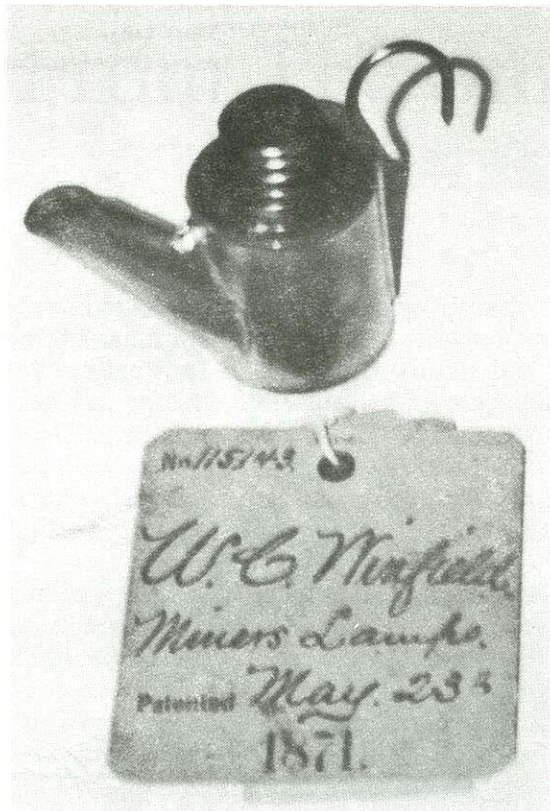 No. 115143.
W. C. Winfield.
Miners Lamps.
Patented May. 23d
1871.